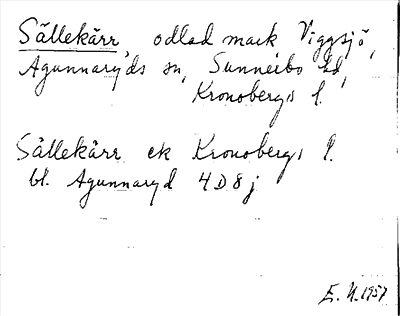 Sällekärr, odlad mark Viggsjö,
Agunnaryds sn, Sunnerbo hd,
Kronobergs l.
Sällekärr ek Kronobergs l.
bl. Agunnaryd 4D8j
E. N. 1957